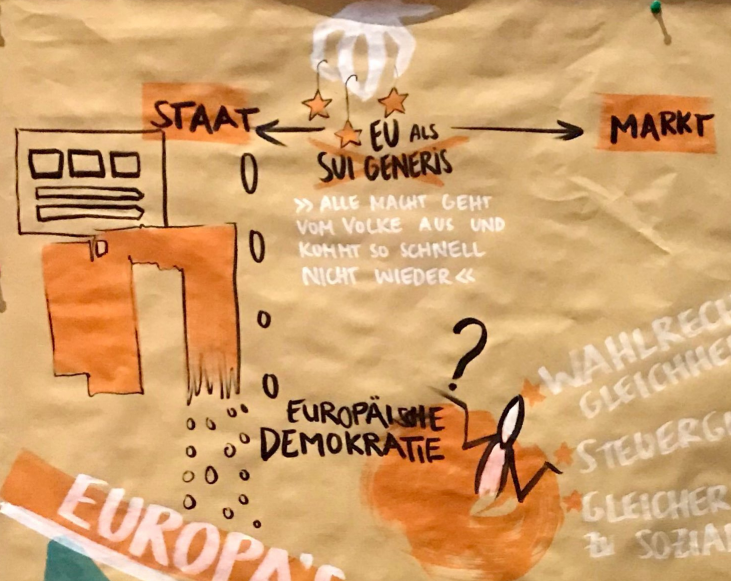 STAAT
EU ALS
SUI GENERIS
MARKT
» ALLE MACHT GEHT
VOM VOLKE AUS UND
KOMMT SO SCHNELL
NICHT WIEDER «
?
EUROPÄISCHE
DEMOKRATIE
WAHLREC
GLEICHHE
STEUERGL
GLEICHER
ZU SOZIA
EUROPA'S